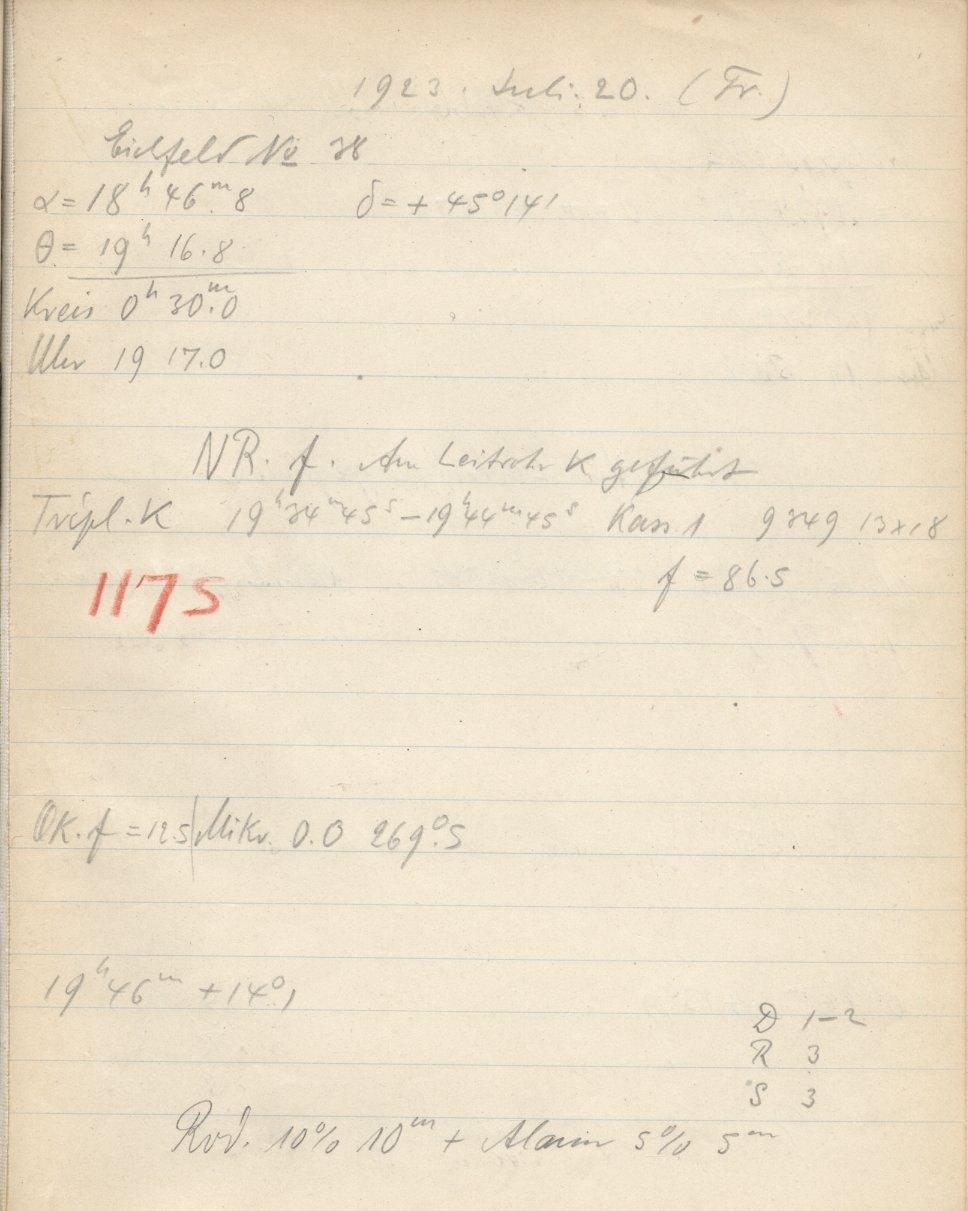 1923. Juli. 20. (Fr.)
Eichfeld No 38
α = 18h 46m.8 δ = + 45°14'
θ = 19h 16.8
Kreis 0h 30m.0
Uhr 19 17.0
NR. f. Am Leitrohr K geführt
Tripl. K 19h34m45s – 19h44m45s Kass 1 9349 13x18
f = 86.5
1175
Ok. f = 12.5 | Mikr. 0.0 269°.5
19h46m +14°.1
D 1–2
R 3
S 3
Rod. 10% 10m + Alaun 5% 5m